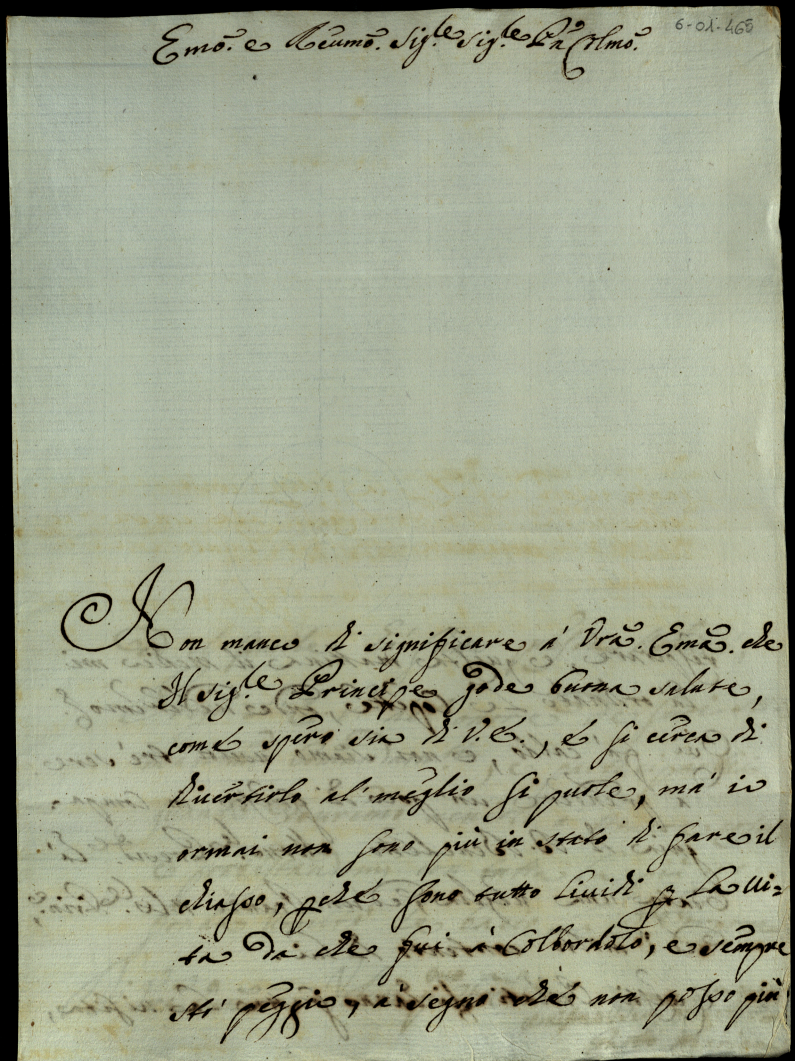 6-01-465
Emo. e Reumo. Sig.le Sig.le Pn Colmo.
Non manco di significare á Vra. Ema. che
Il sig.le Principe gode buona salute,
come spero sia di V.E., e si cerca di
diuertirlo al' meglio si puole, má io
ormai non sono più in stato di fare il
chiasso, pché sono tutto liuidi p la ui=
ta da che fui à Colbordolo, e sempre
stò peggio, a' segno che non posso più